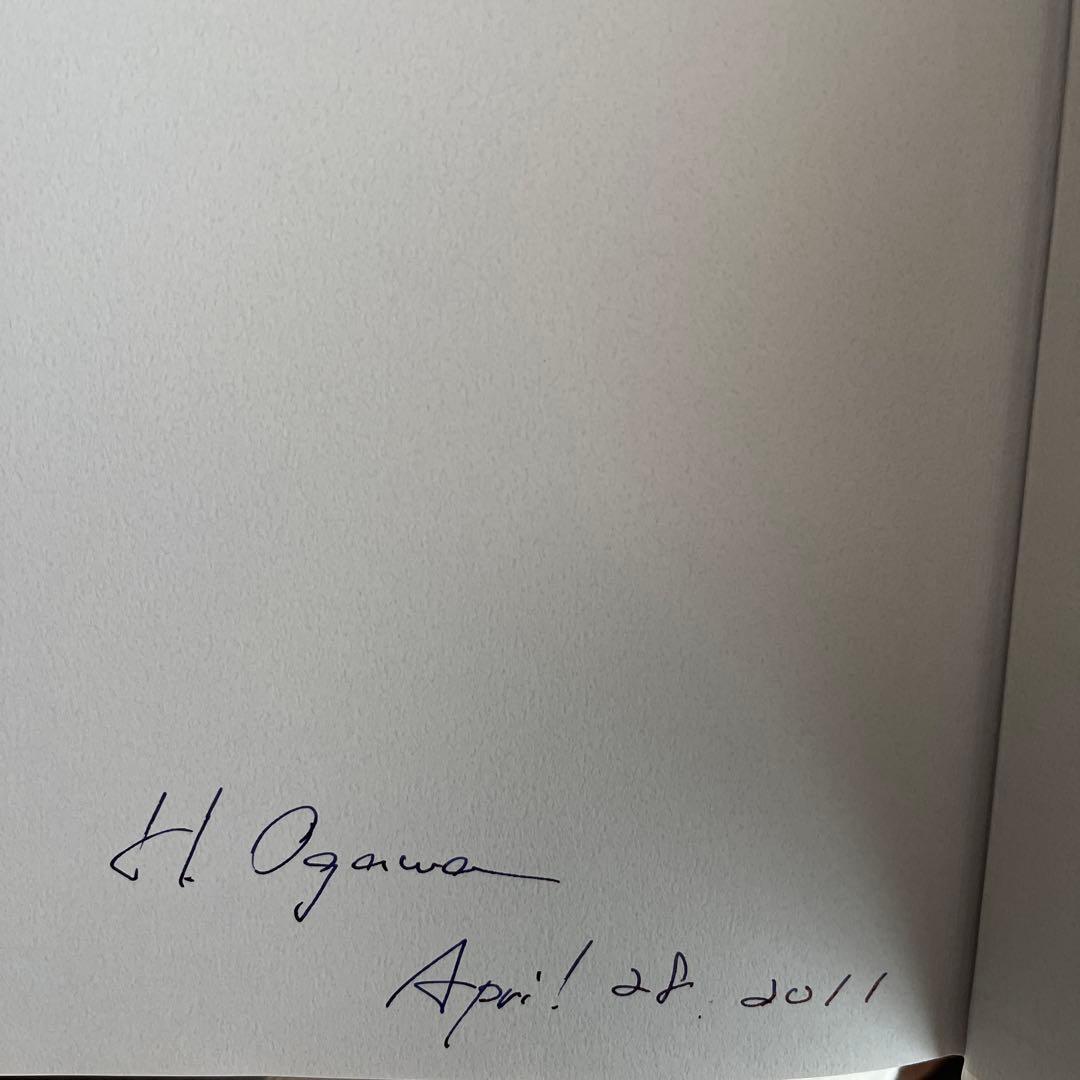 H. Ogawa
April 28. 2011